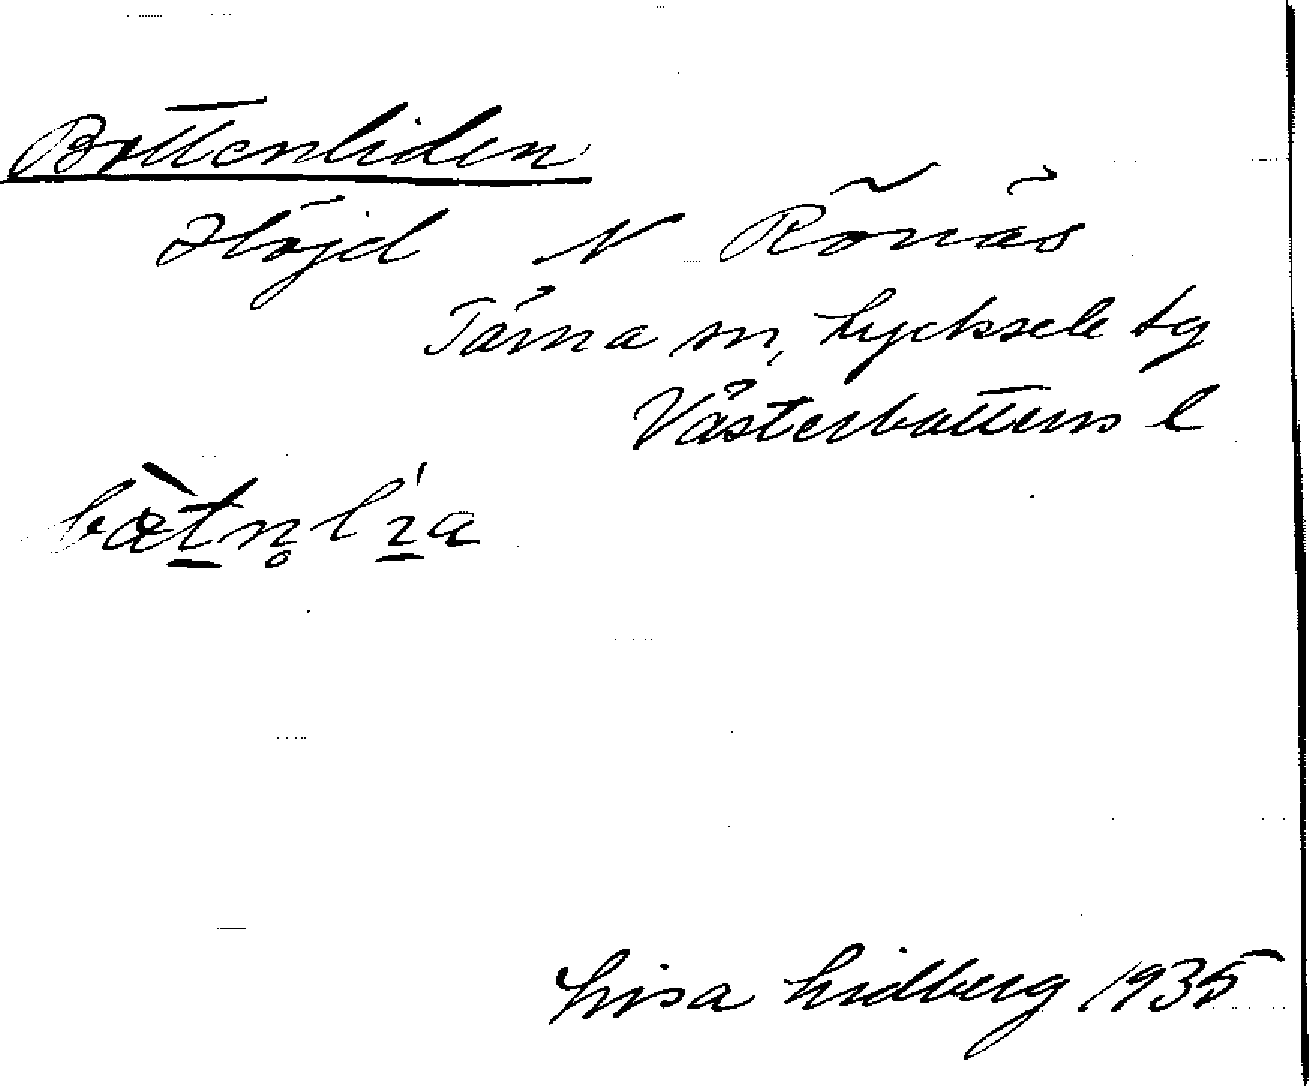 Bottenliden
Höjd N Rönäs
Tärna sn, Lycksele tg
Västerbottens l
Lisa Lidberg 1935